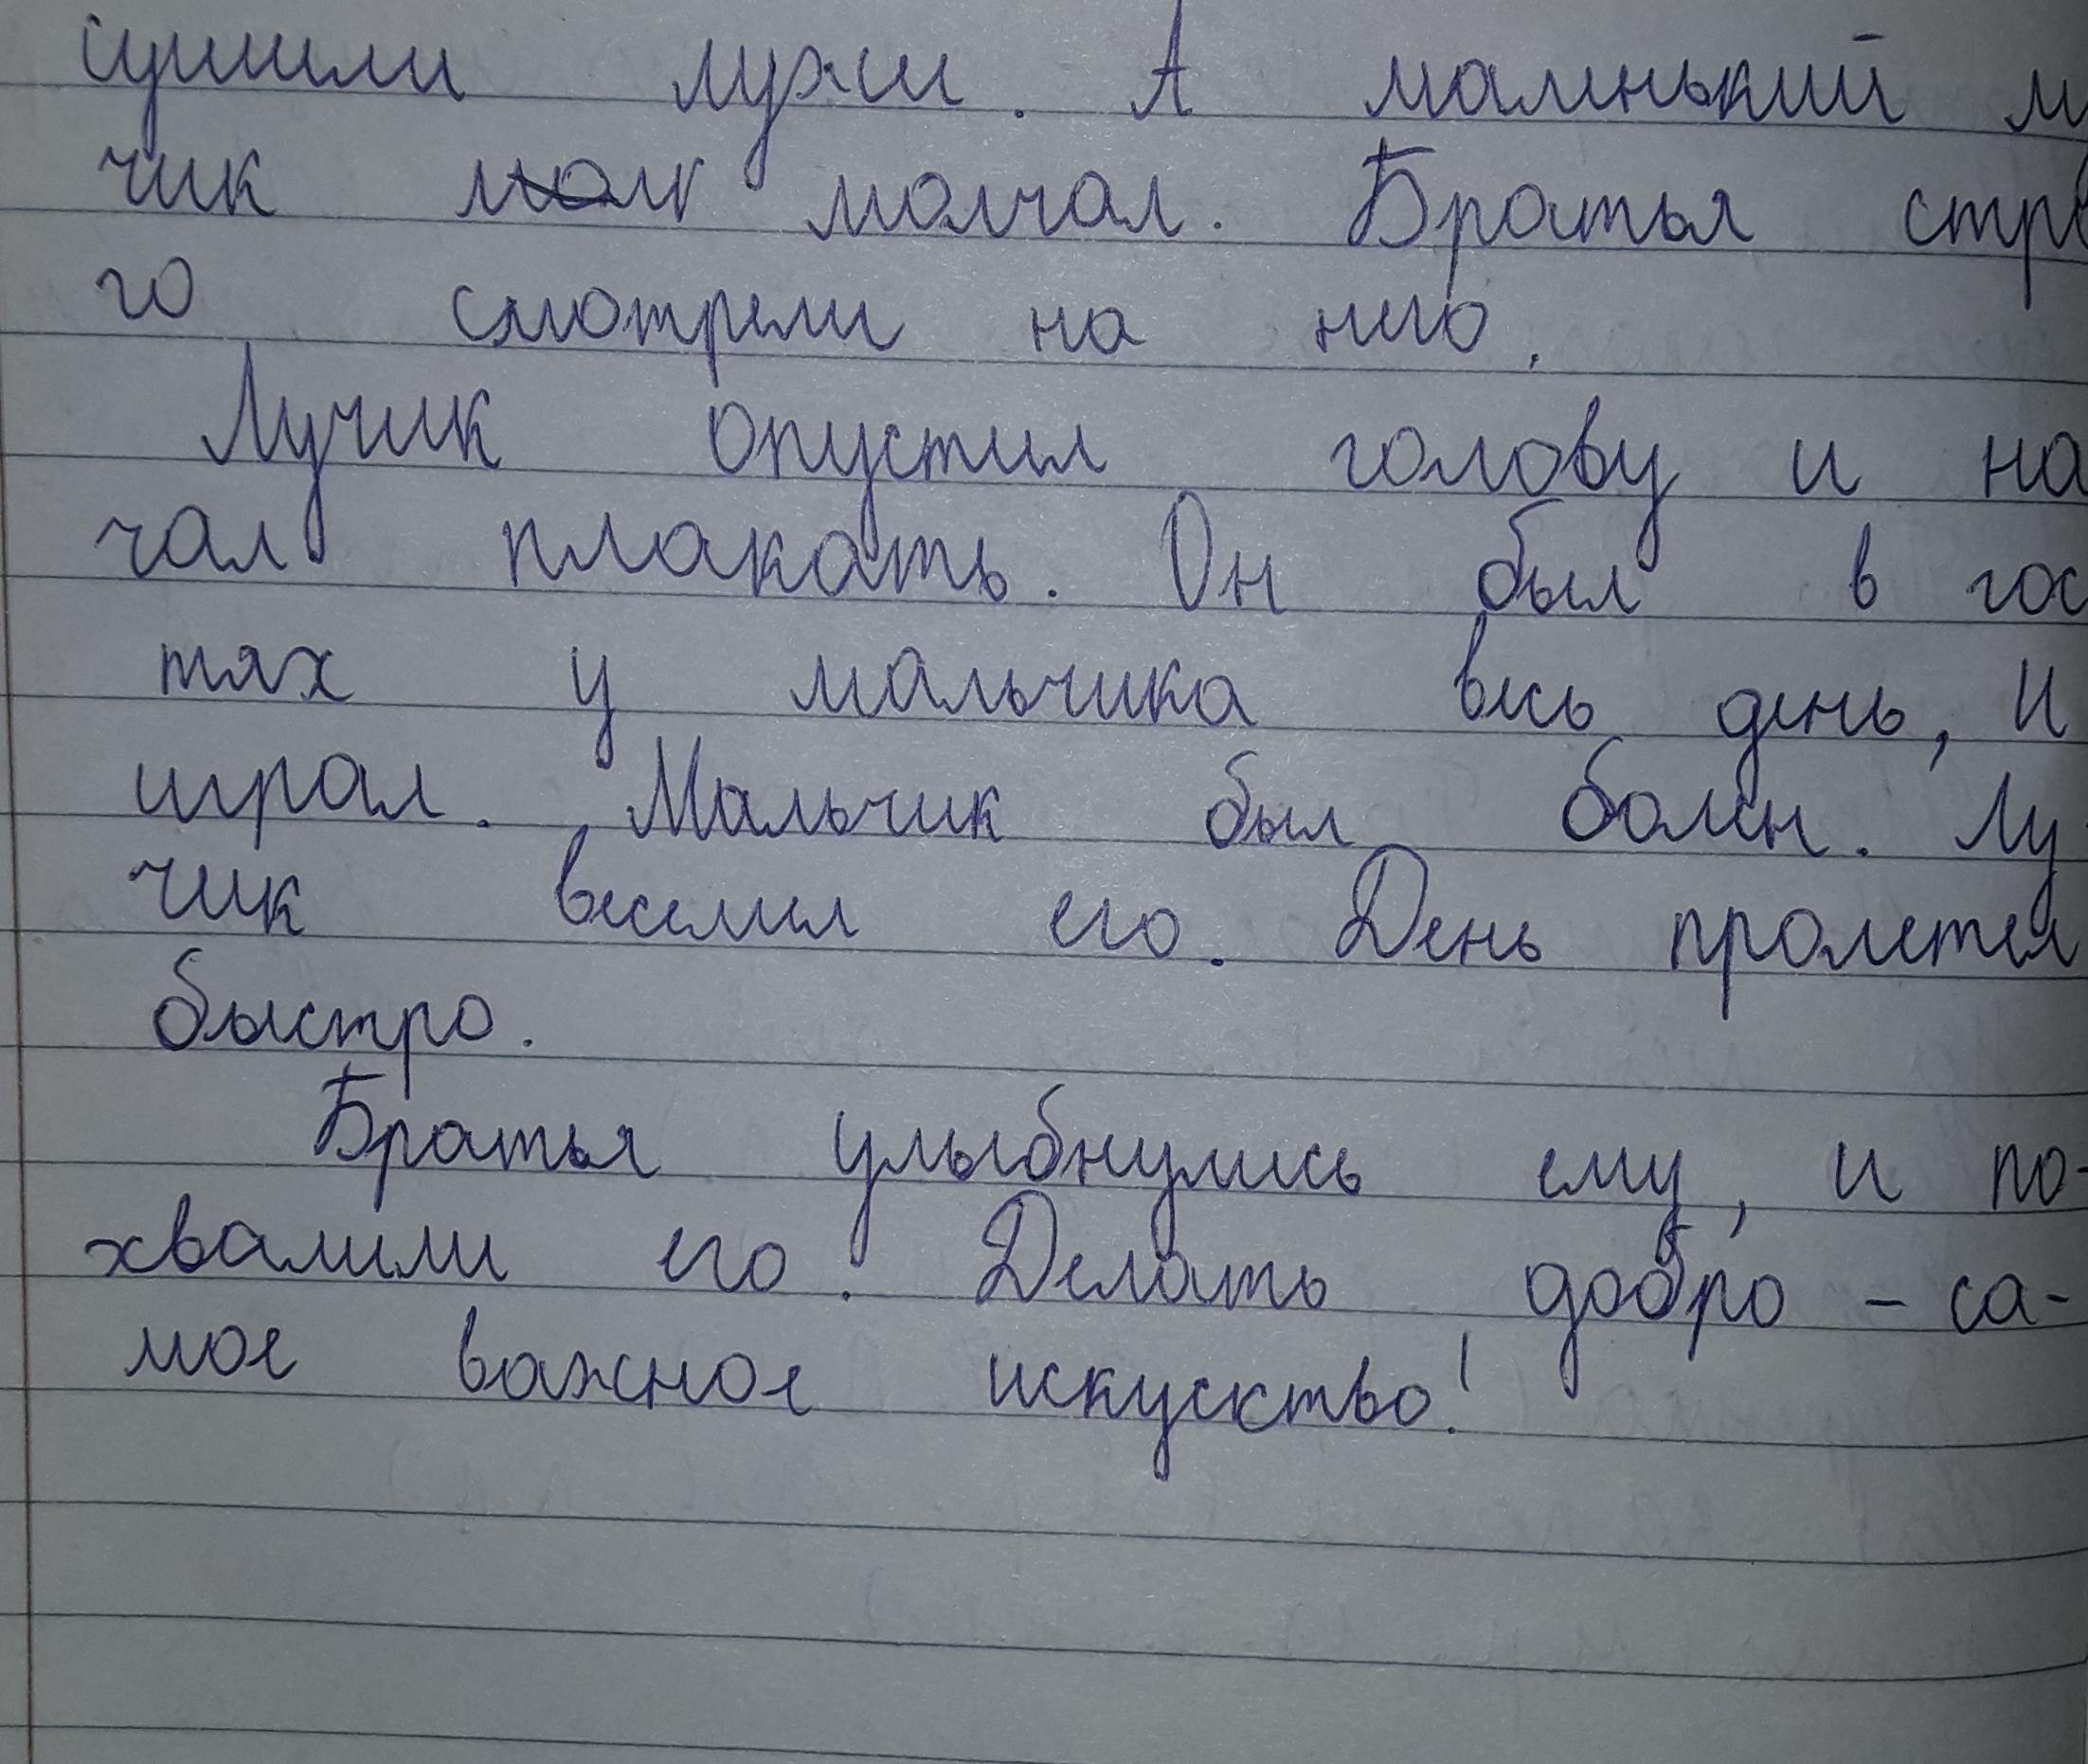 сушили лужи. А маленький лу
чик молч молчал. Братья стро
го смотрели на него.
Лучик опустил голову и на
чал плакать. Он был в гос
тях у мальчика весь день, и
играл. Мальчик был болен. Лу
чик веселил его. День пролетел
быстро.
Братья улыбнулись ему, и по-
хвалили его. Делать добро - са-
мое важное искусктво!